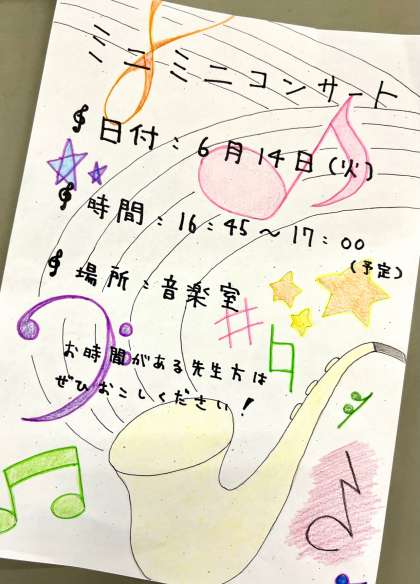 ミニミニコンサート
日付：6月14日(火)
時間：16：45〜17：00
(予定)
場所：音楽室
お時間がある先生方は
ぜひおこしください！